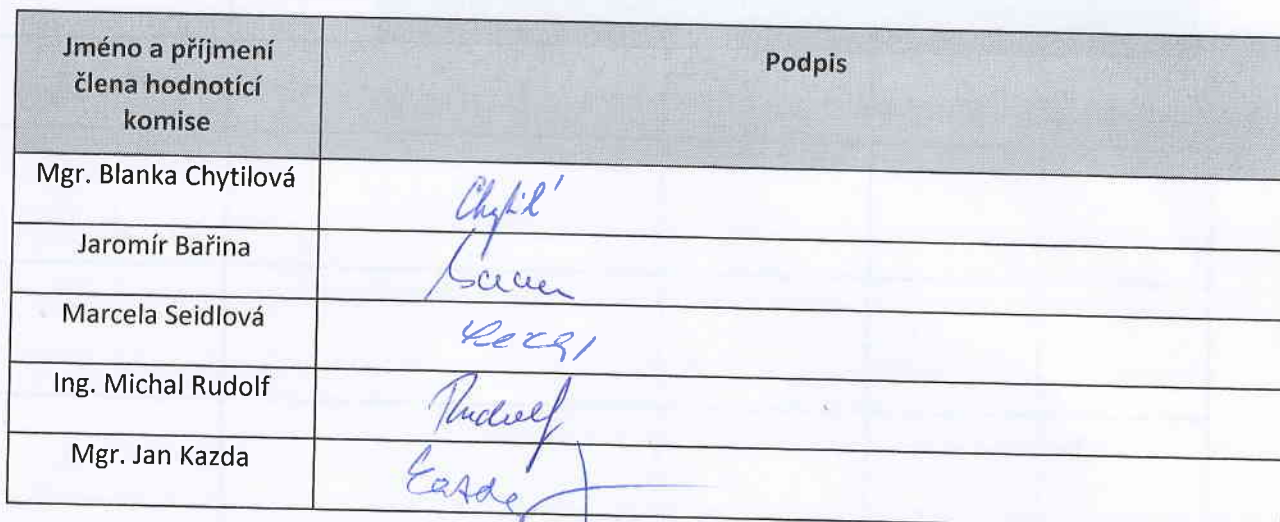 Jméno a příjmení
člena hodnotící
komise
Podpis
Mgr. Blanka Chytilová
Jaromír Bařina
Marcela Seidlová
Ing. Michal Rudolf
Rudolf
Mgr. Jan Kazda
Kazda